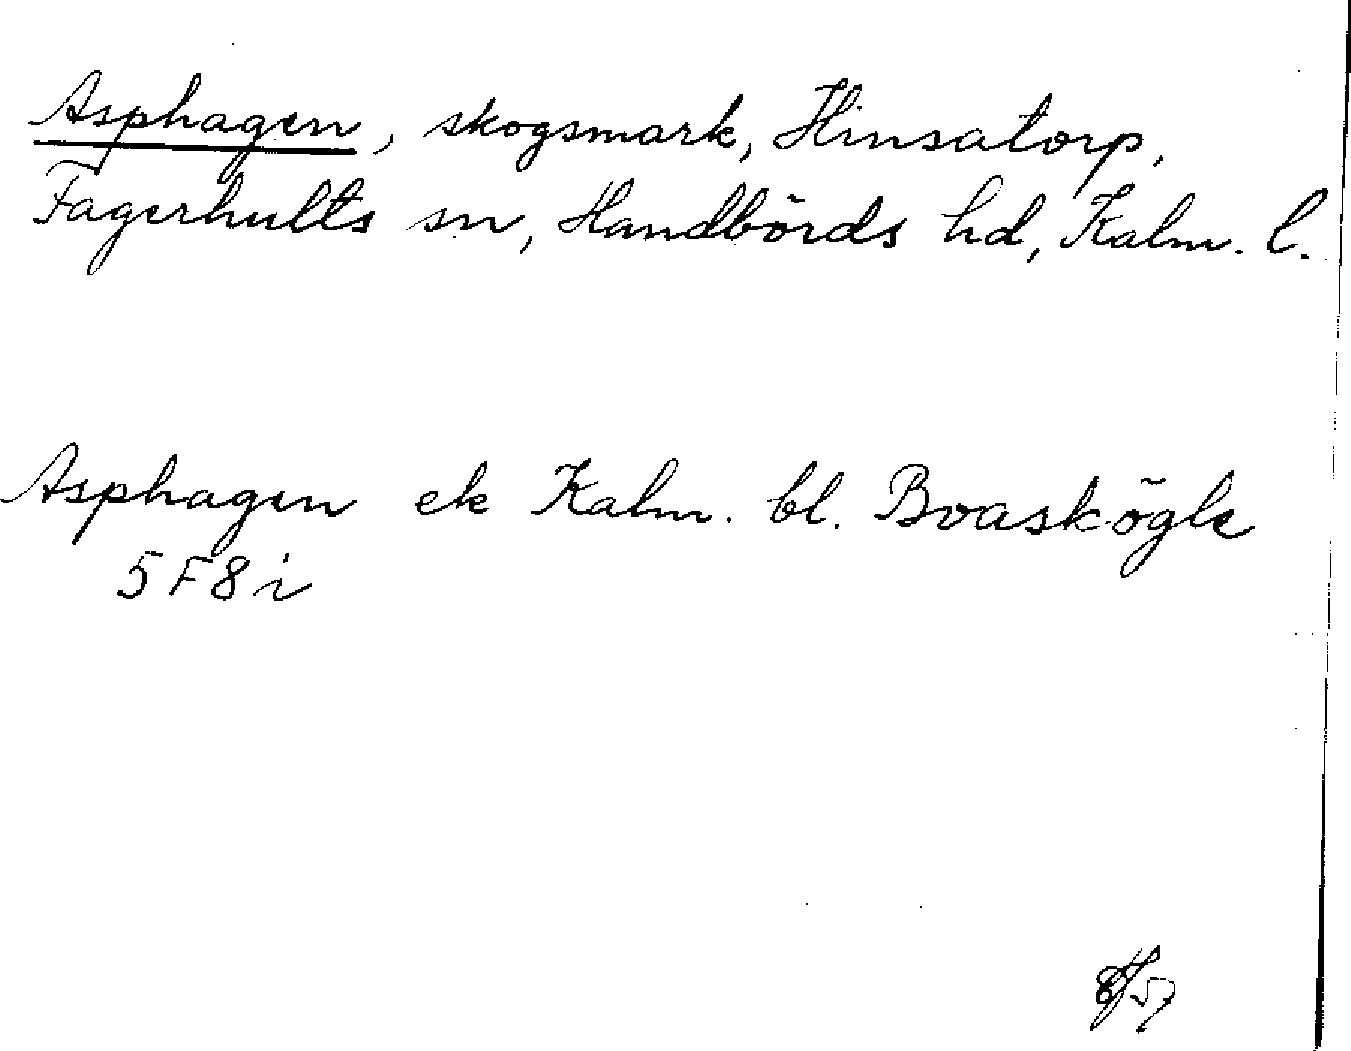 Asphagen, skogsmark, Hinsatorp,
Fagerhults sn, Handbörds hd, Kalm. l.
Asphagen ek Kalm. bl. Boaskögle
5F8i